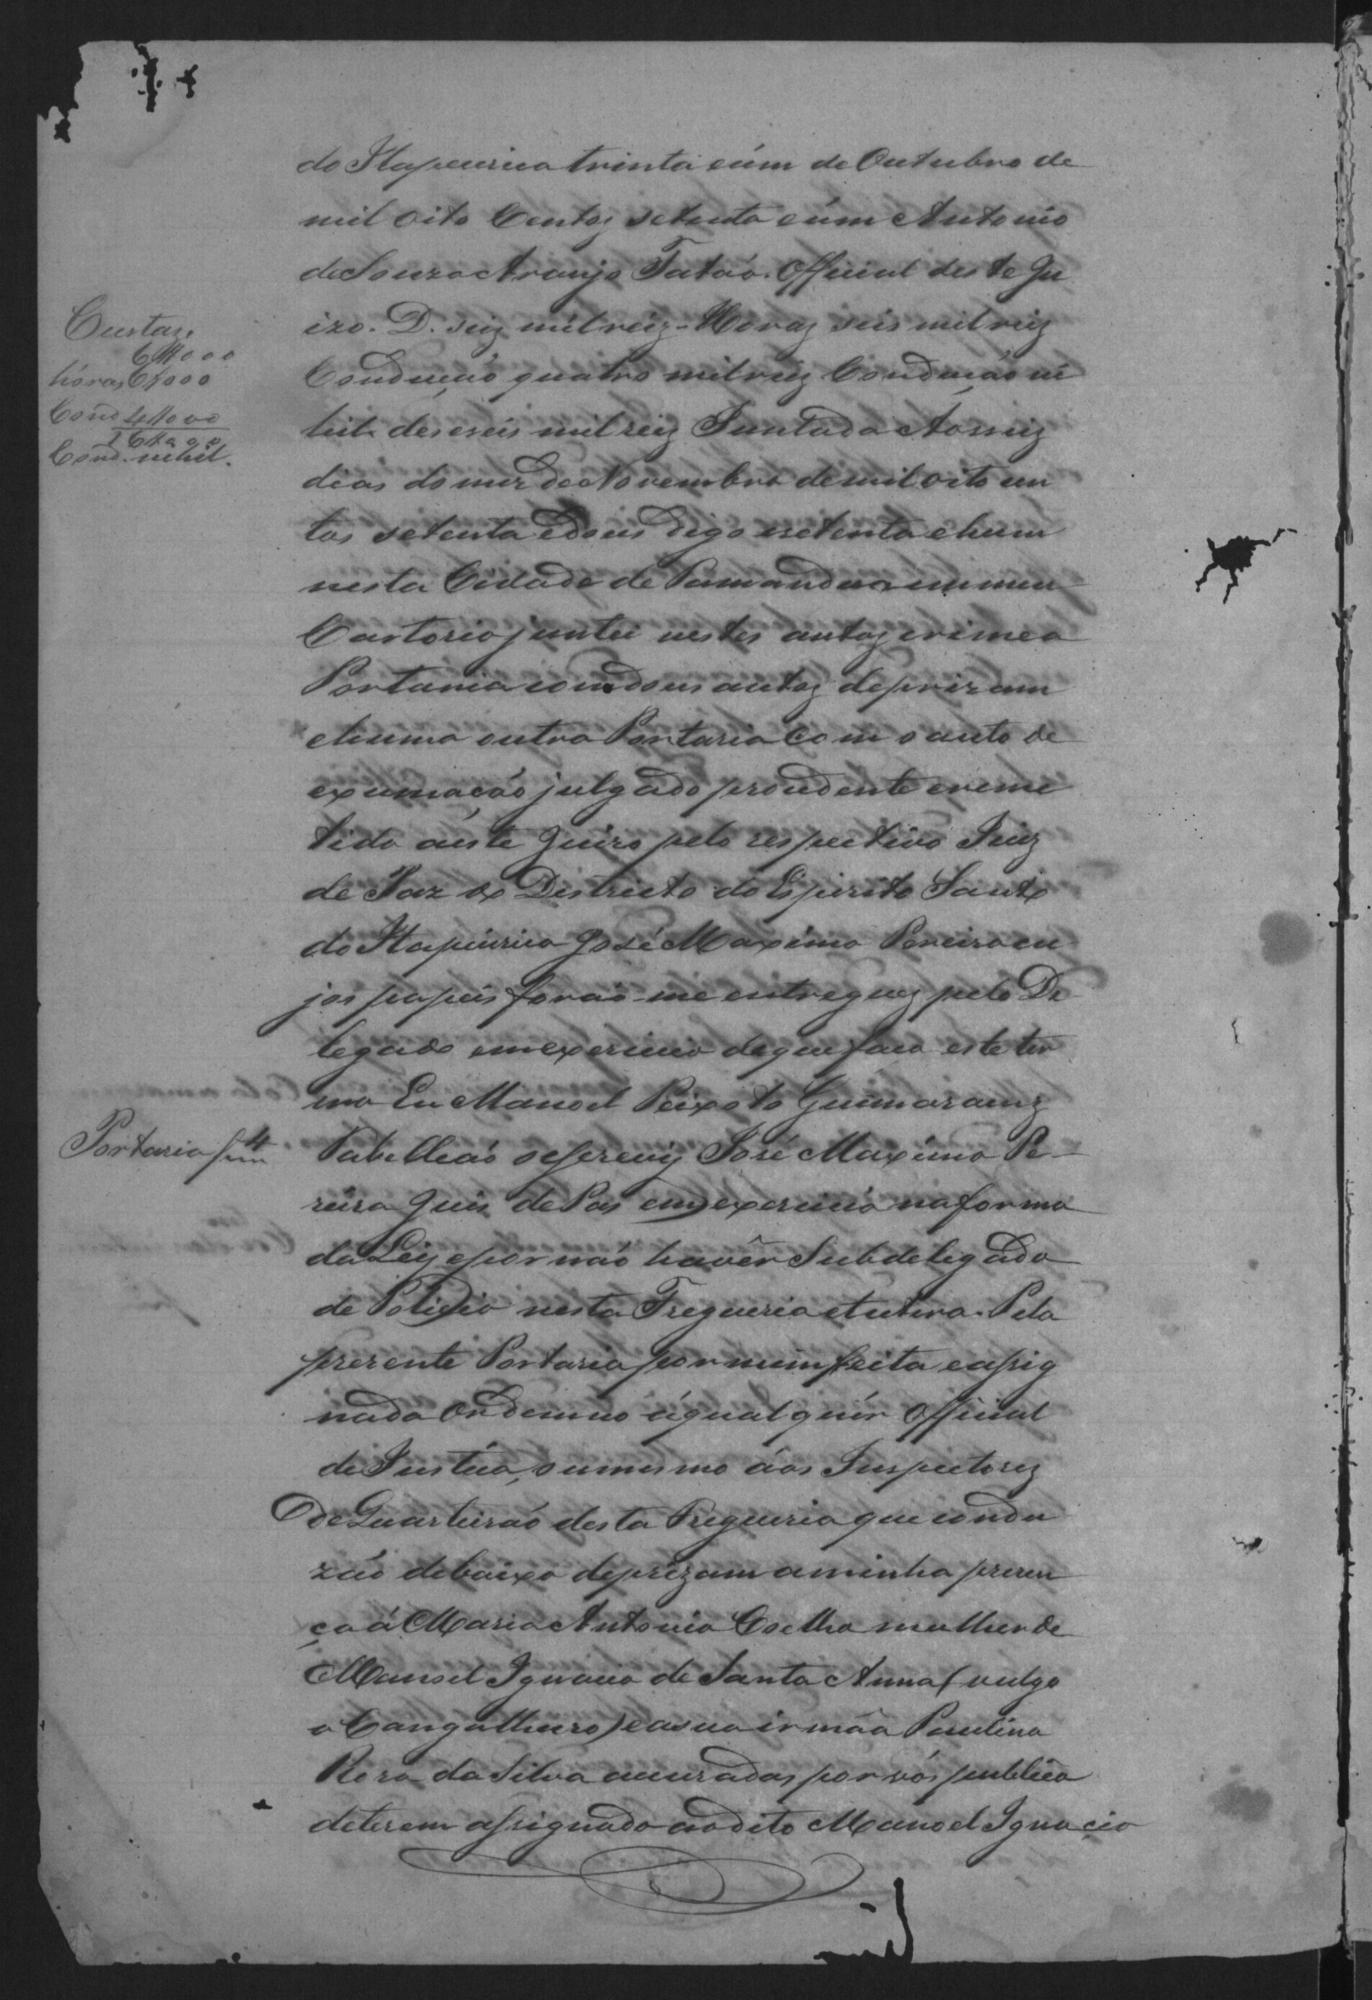 do Itapecirica trinta eúm de Outubro de
mil oito Centos setenta eúm Antonio
de Souza Araujo Tatáo. Official deste Ju
izo. D. seis mil reis - Horas seis mil reis
Custas.
6$000
horas 6$000
Cond 4$000
16$000
Cond. nihil.
Condução quatro mil reis Condução ni
hil deseseis mil reis Juntada Aos seis
dias do mez de Novembro de mil oito cen
tos setenta e dois digo setenta e hum
nesta Cidade de Tamandua em meu
Cartorio juntei nestes autos crime a
Portaria com dous autos de prizam
e huma outra Portaria com o auto de
exumação julgado procedente e reme
tido a este Juizo pelo respectivo Juiz
de Paz do Districto do Espirito Santo
do Itapecirica José Maximo Pereira cu
jos papeis forão-me entregues pelo De
legado em exercicio de que faco este ter
mo Eu Manoel Peixoto Guimaraens
Portaria f 4
Tabelleão o escrevij José Maximo Pe-
reira Juis de Pas em exercicio na forma
da Ley e por não havêr Subdelegado
de Policia nesta Fregueria etutera. Pela
prezente Portaria por mim feita e assig
nada Ordenno áqualquér Official
de Justica, ou mesmo áos Inspectores
de Quarteirão desta Fregueria que condu
zão debaixo de prizam a minha prezen
ça á Maria Antonia Coelha mulher de
Manoel Ignacio de Santa Anna (vulgo
o Cangalheiro) e a sua irmãa Paulina
Roza da Silva acuzadas por vós publica
de terem assignado ao dito Manoel Ignacio